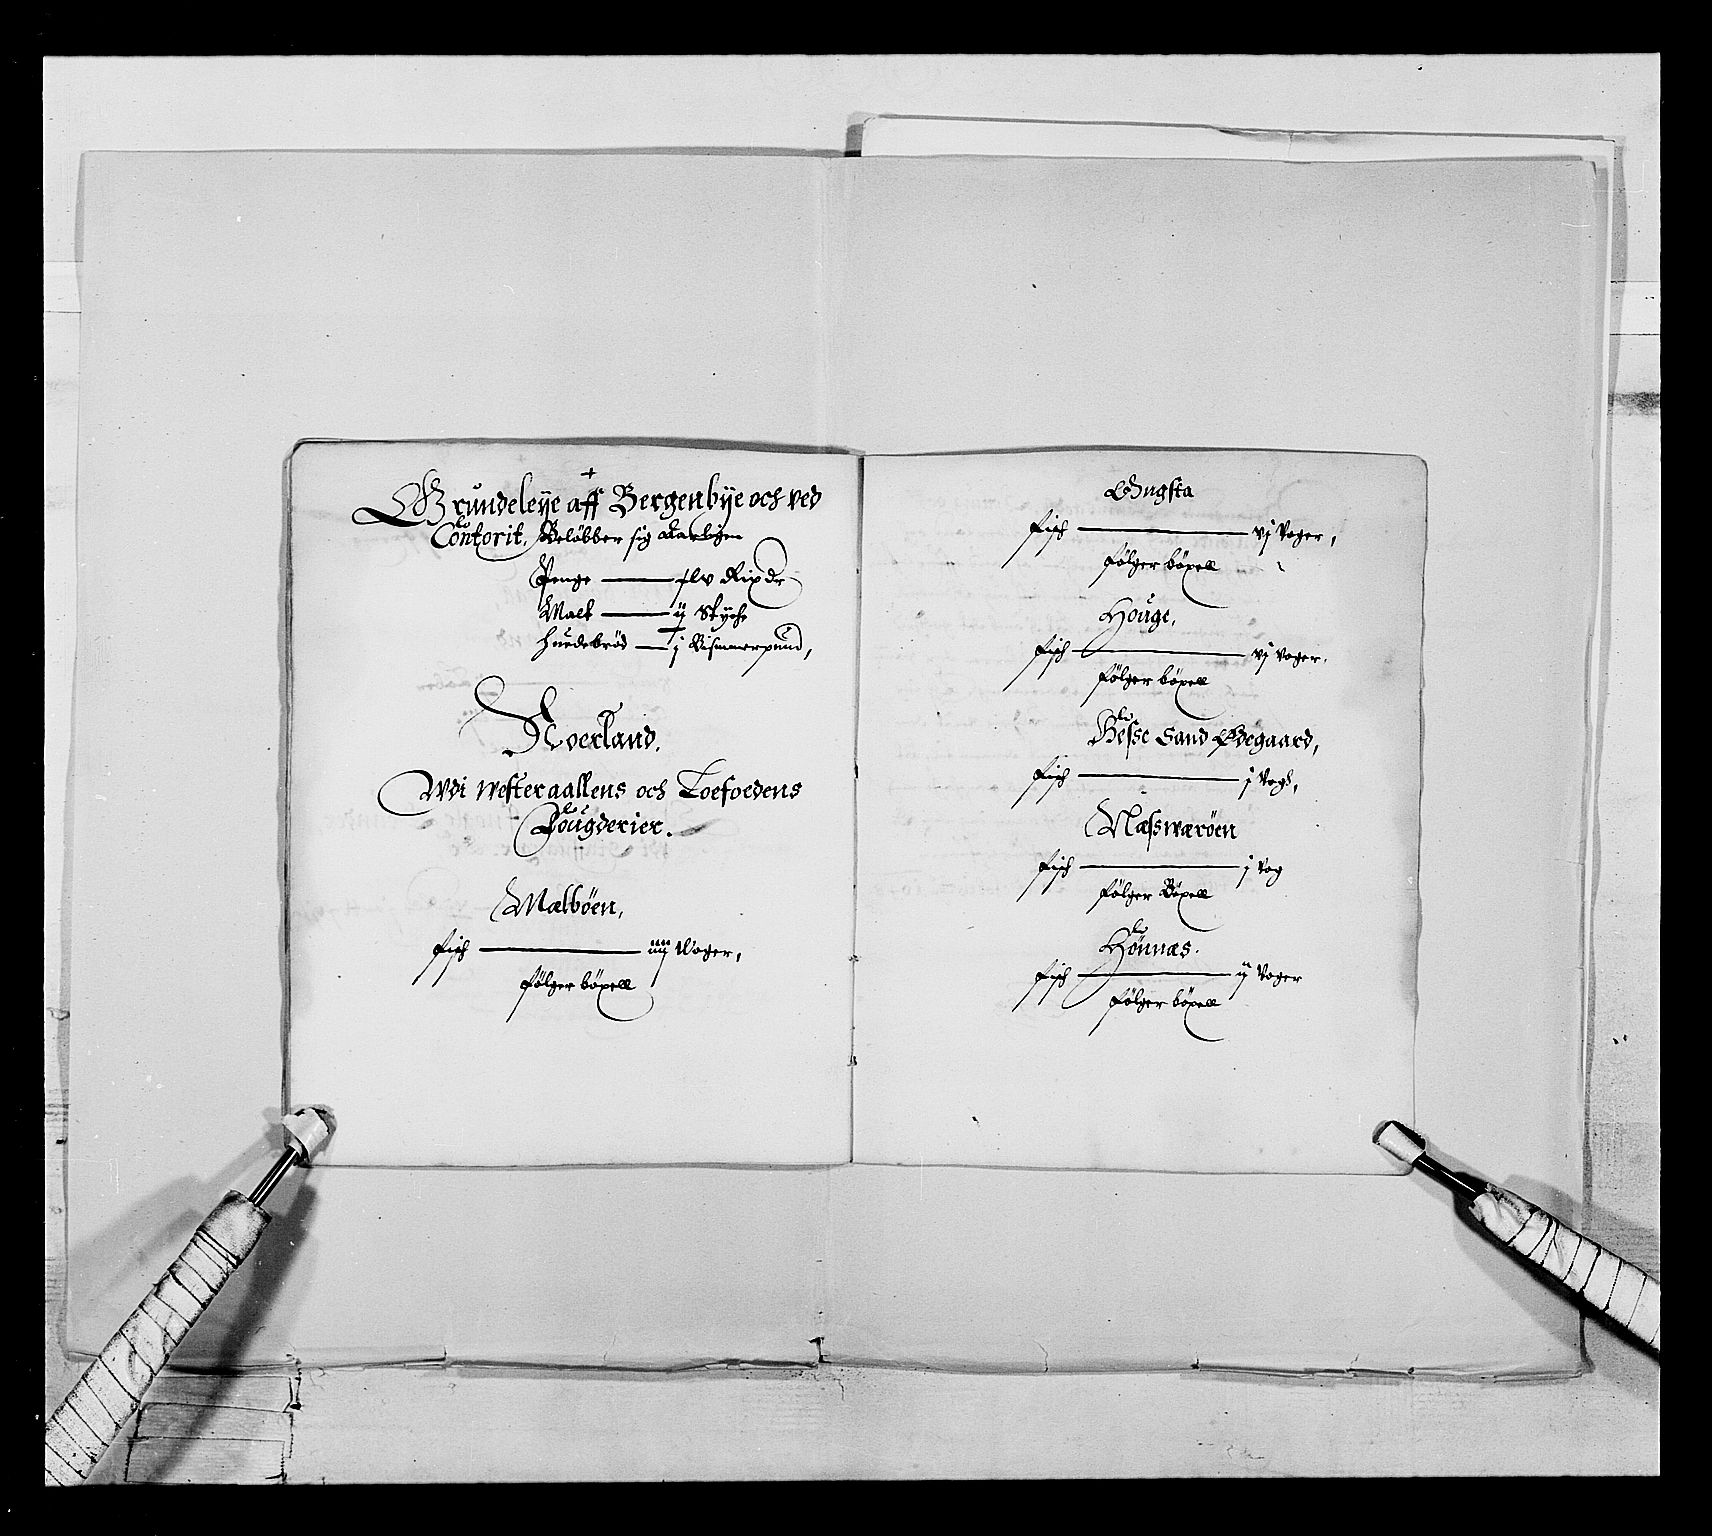 +
Grundeleÿe aff Bergenbÿe och ved
Contorit. Beløbber sig Aarligen
Penge — Rixdr
Malt — ij Stÿche
Huedebrød — j Bismmerpund,
Noerland.
Wdi Westeraallens och Loefoedens
Fougderier.
Mælböen,
Fisch — iiij Woger,
følger böxell
Gugsta
Fisch — vj Voger,
følger böxell
Houge,
Fisch — vj Voger.
følger böxell
Hesse Sand Ödegaard,
Fisch — j Vog,
Næsswæröen
Fisch — j Vog
følger Böxell
Hönnæs.
Fisch — ij Voger
følger böxell